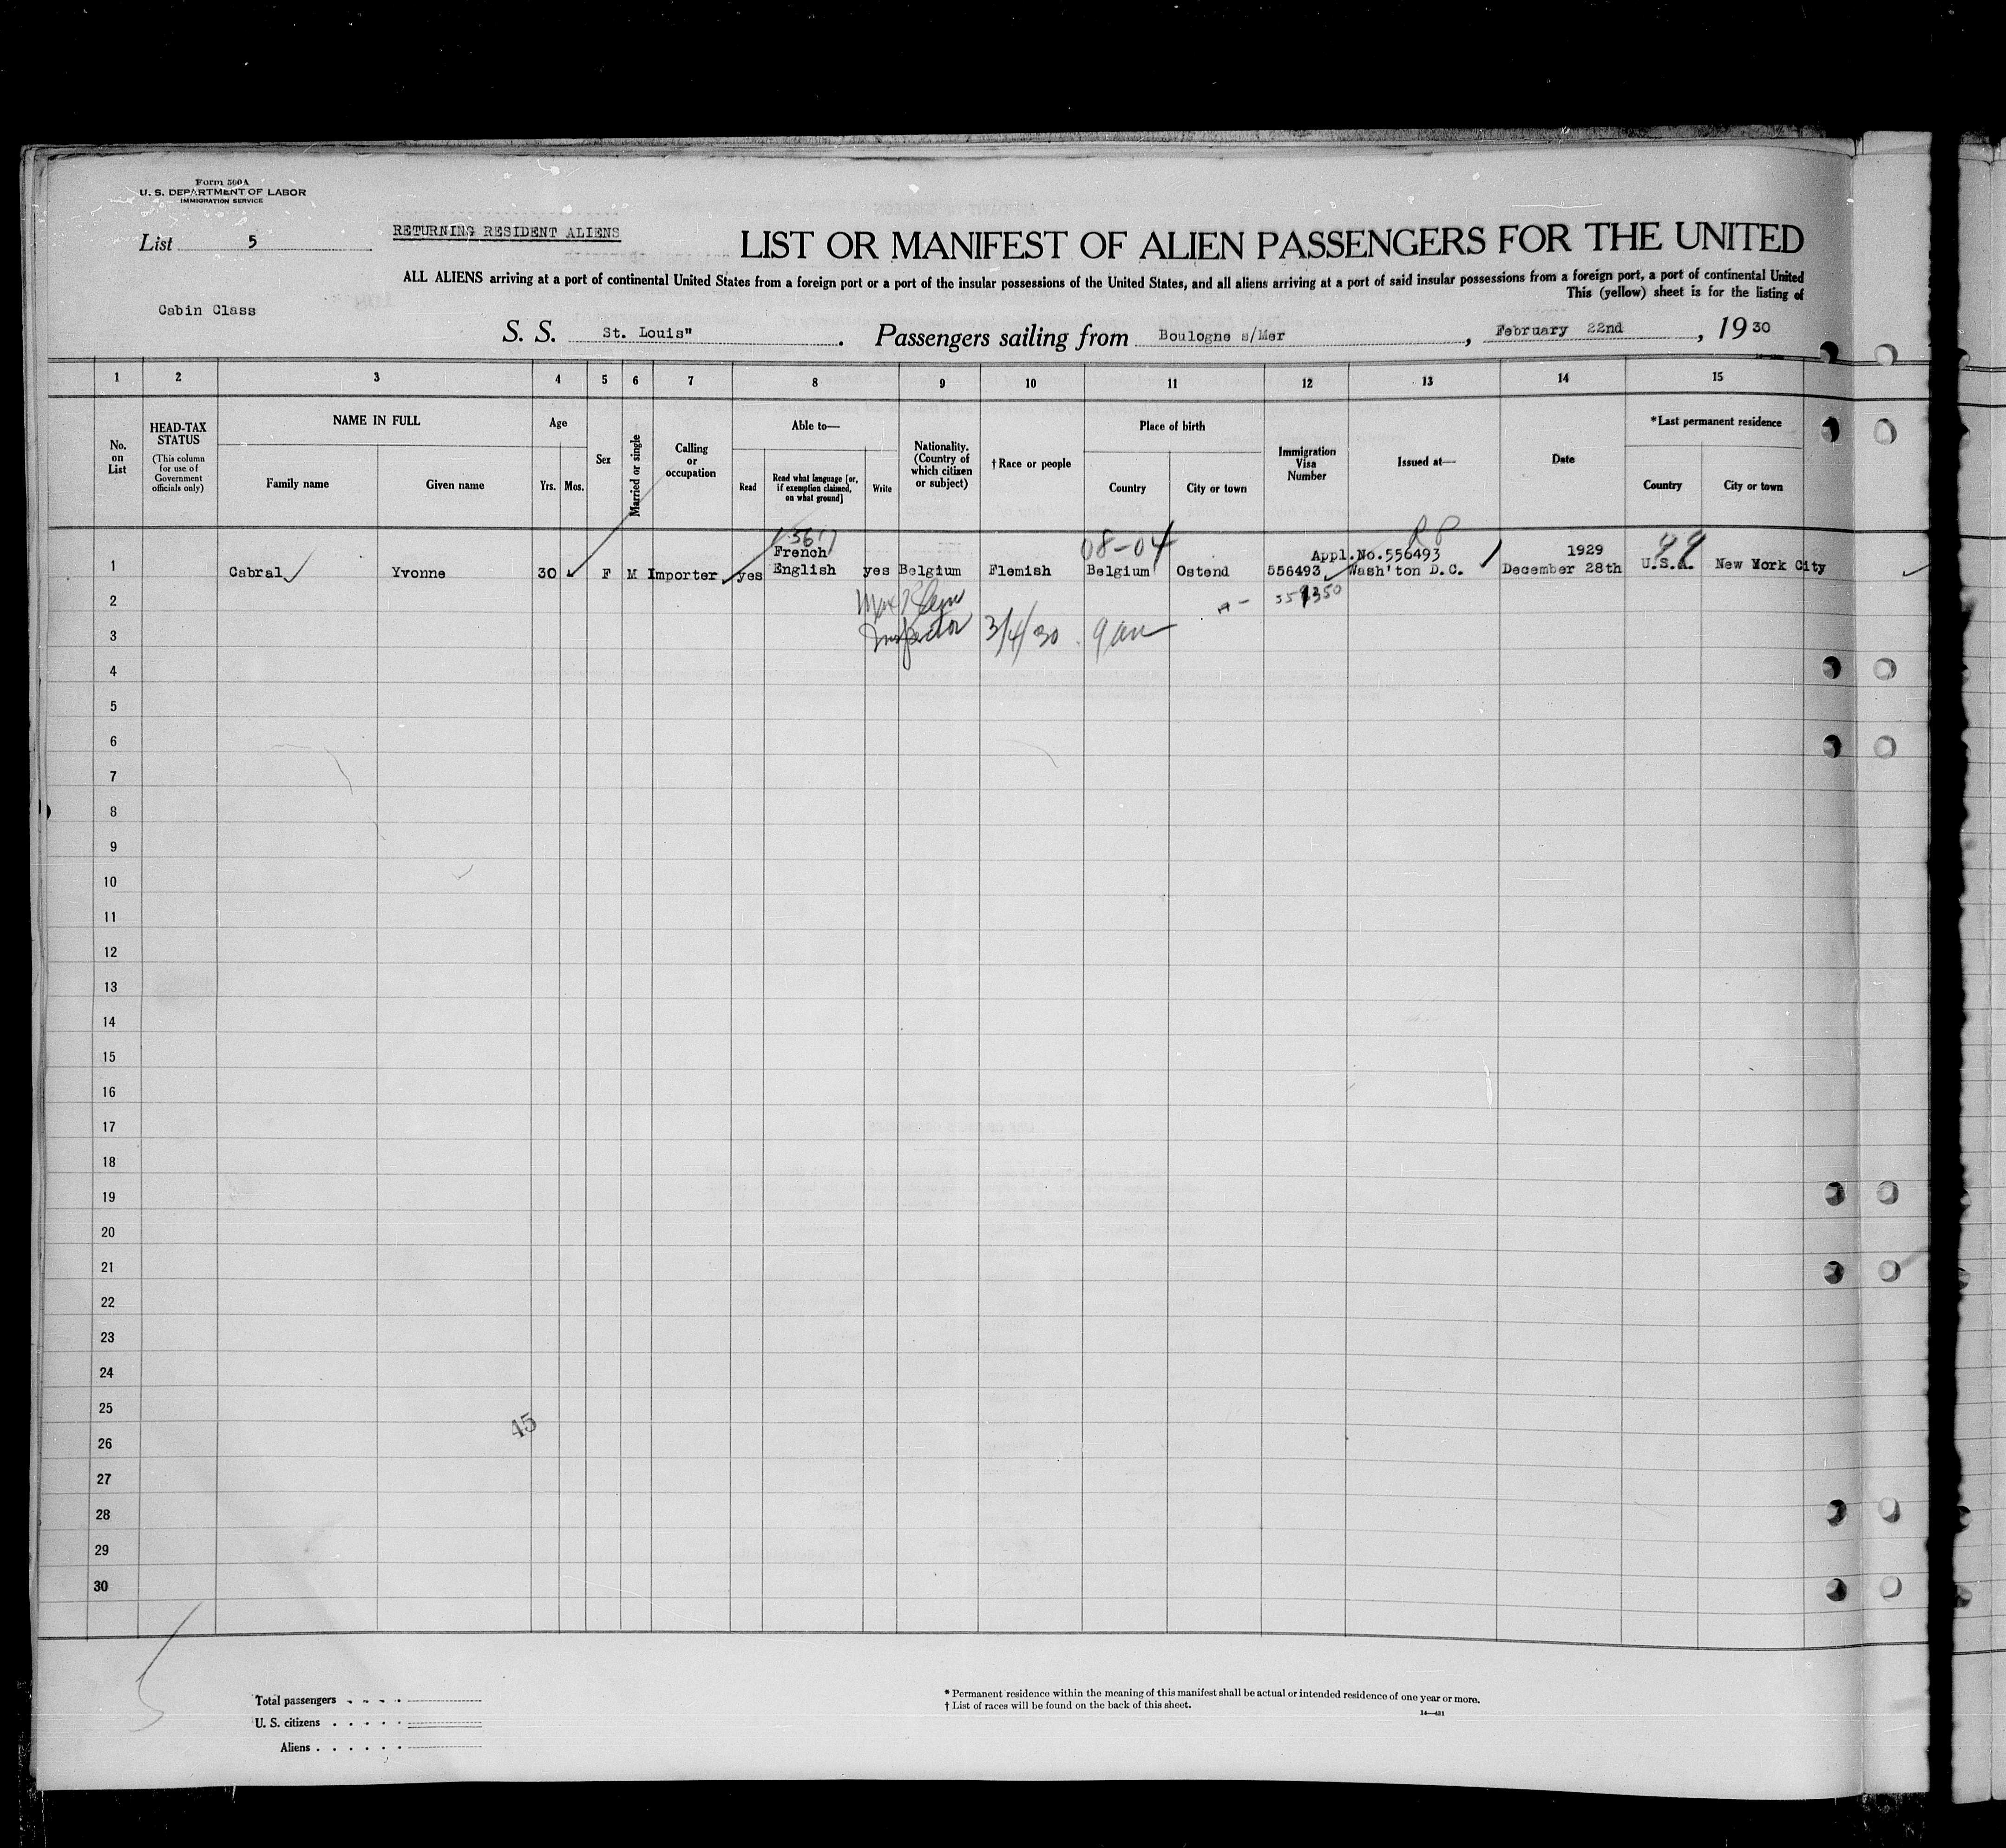 Form 500A
U. S. DEPARTMENT OF LABOR
IMMIGRATION SERVICE
List 5
RETURNING RESIDENT ALIENS
LIST OR MANIFEST OF ALIEN PASSENGERS FOR THE UNITED
ALL ALIENS arriving at a port of continental United States from a foreign port or a port of the insular possessions of the United States, and all aliens arriving at a port of said insular possessions from a foreign port, a port of continental United
This (yellow) sheet is for the listing of
Cabin Class
S. S. St. Louis". Passengers sailing from Boulogne s/Mer, February 22nd, 1930
1 2 3 4 5 6 7 8 9 10 11 12 13 14 15
No. on List
HEAD-TAX STATUS
(This column for use of Government officials only)
NAME IN FULL
Family name
Given name
Age
Yrs.
Mos.
Sex
Married or single
Calling or occupation
Able to—
Read
Read what language [or, if exemption claimed, on what ground]
Write
Nationality. (Country of which citizen or subject)
† Race or people
Place of birth
Country
City or town
Immigration Visa Number
Issued at—
Date
*Last permanent residence
Country
City or town
08-04
French
Appl.No.556493
1929
99
1 Cabral Yvonne 30 F M Importer yes English yes Belgium Flemish Belgium Ostend 556493 Wash'ton D.C. December 28th U.S.A. New York City
2
3 Inspector 3/4/30 9 am
4
5
6
7
8
9
10
11
12
13
14
15
16
17
18
19
20
21
22
23
24
25
45
26
27
28
29
30
Total passengers
U. S. citizens
Aliens
* Permanent residence within the meaning of this manifest shall be actual or intended residence of one year or more.
† List of races will be found on the back of this sheet.